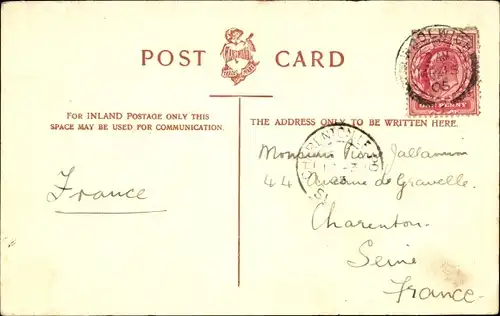 POST CARD
FOR INLAND POSTAGE ONLY THIS
SPACE MAY BE USED FOR COMMUNICATION.
THE ADDRESS ONLY TO BE WRITTEN HERE.
WOOLWICH
05
ONE PENNY
CHARENTON LE
France
Monsieur Pierre
44 Avenue de Gravelle.
Charenton
Seine
France.